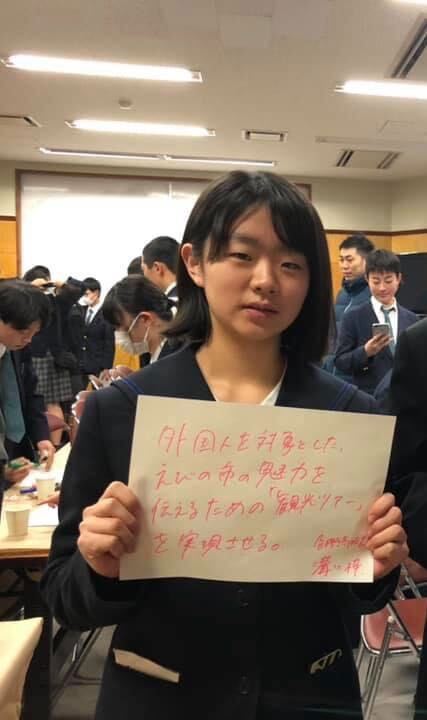 外国人を対象とした、
えびの市の魅力を
伝えるための「観光ツアー」
を実現させる。